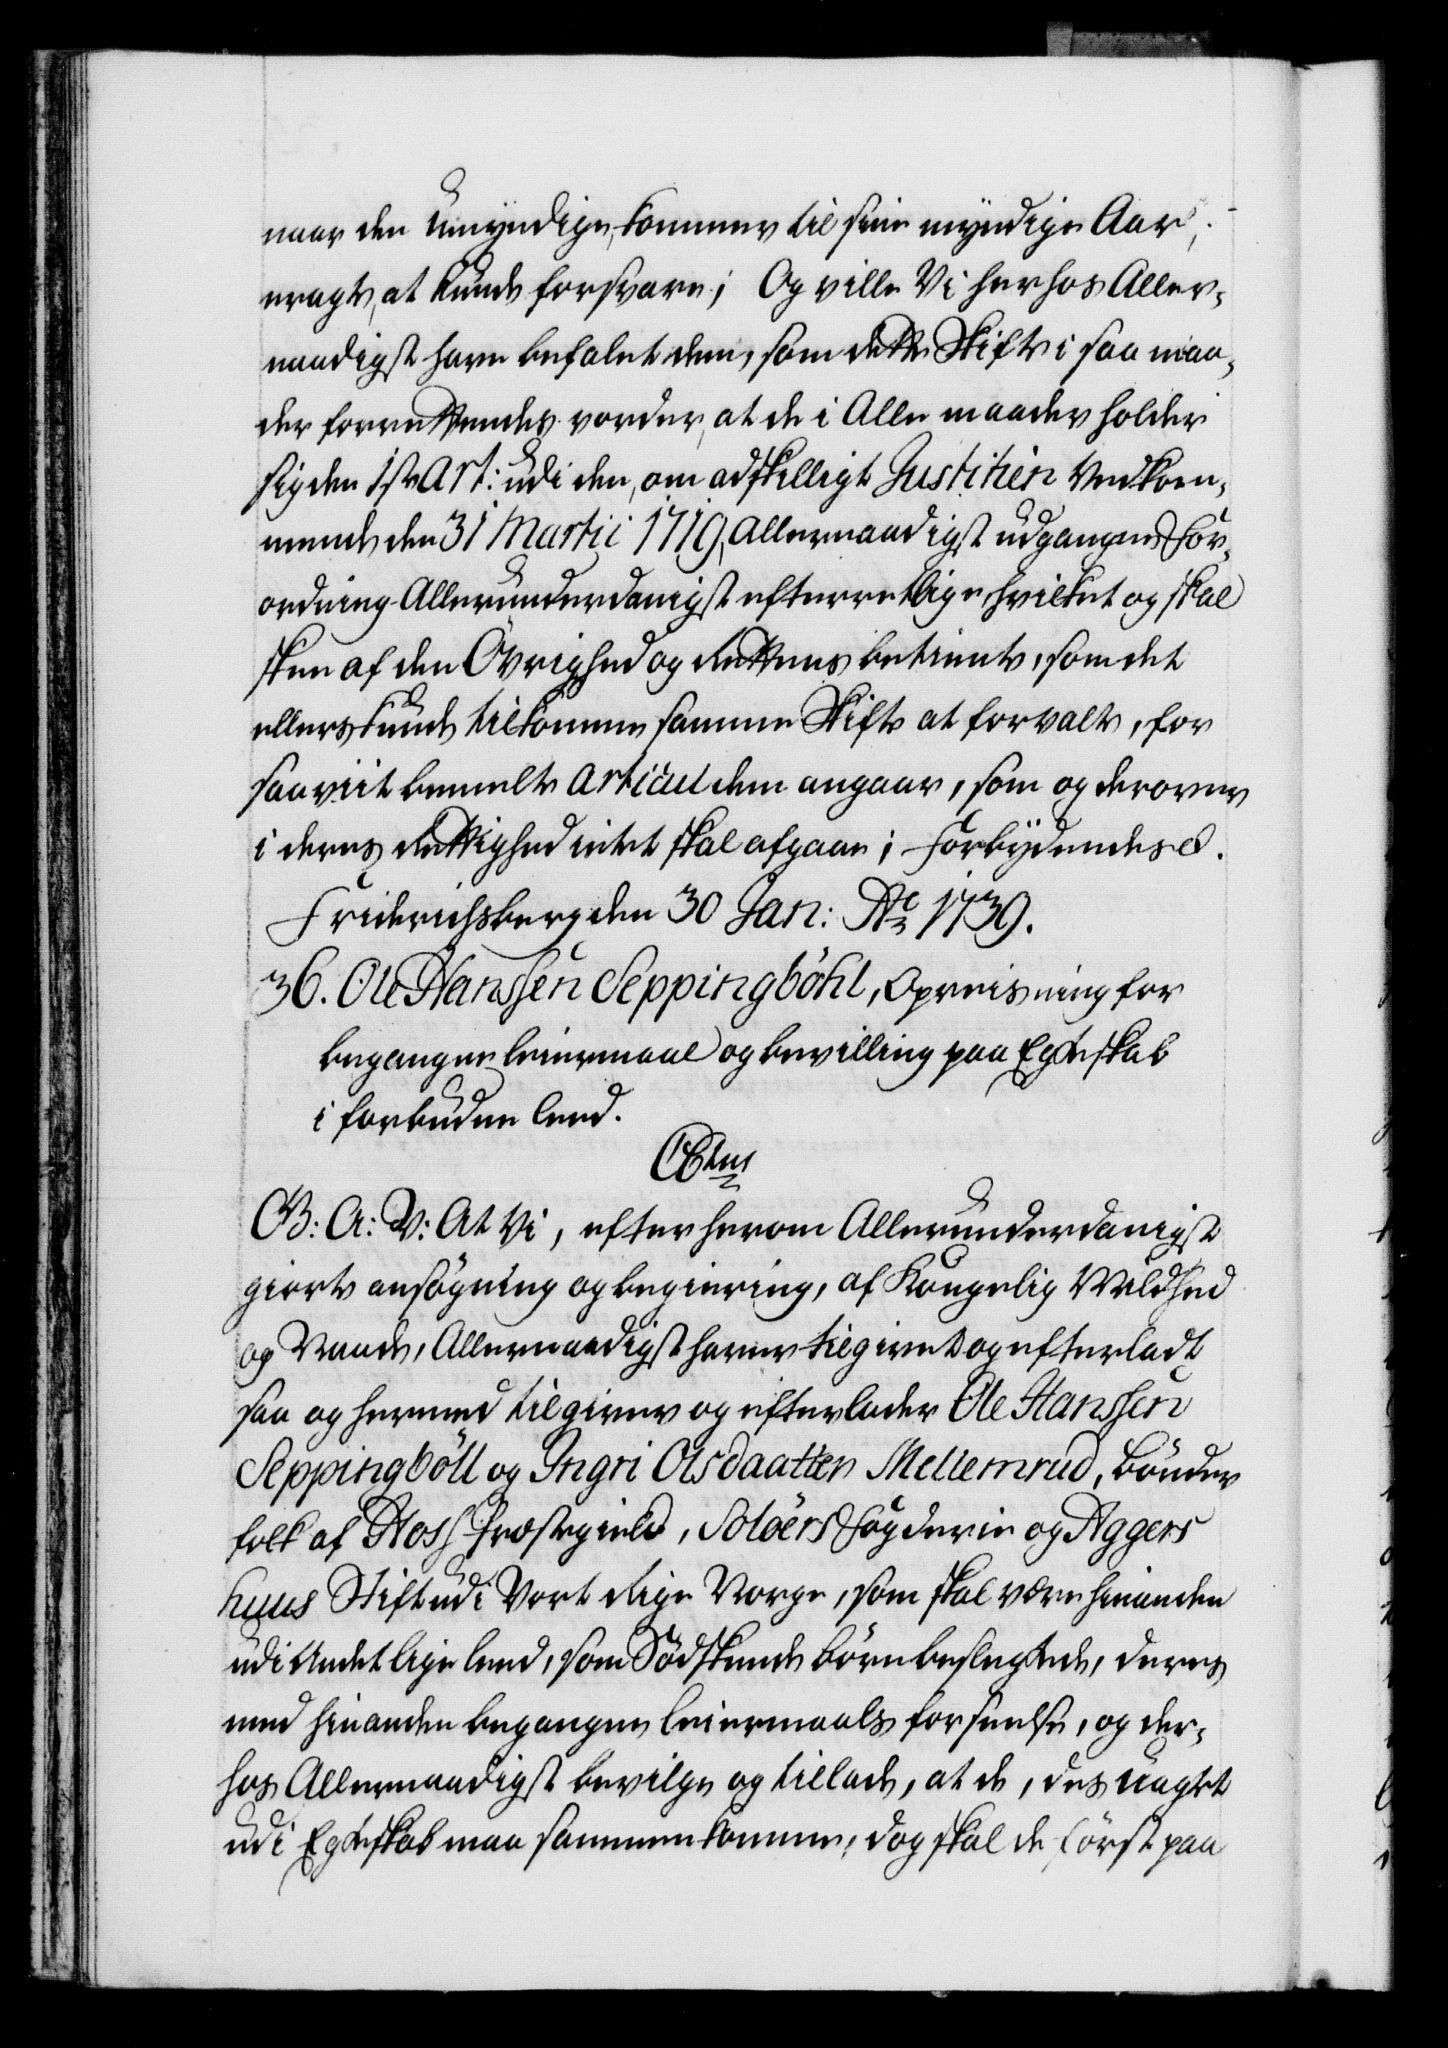 naar den Umyndige, kommer til sine myndige Aar,
eragte, at kunde forsvare; Og ville Vi herhos Aller-
naadigst have befalet dem, som dette Skifte i saa maa-
der forrettendes vorder, at de i Alle maader holder
sig den 1ste Art: udi den, om adskilligt Justitien Vedkom-
mende den 31 Martii 1719, Allernaadigst udgangne For-
ordning Allerunderdanigst efterretlige, hvilket og skal
skee af den Øvrighed og Rettens betiente, som det
ellers kunde tilkomme samme Skifte at forvalte, for
saaviit bemelte Articul dem angaar, som og derover
i deres Rettighed intet skal afgaae; Forbydendes &.
Friderichsberg den 30 Jan: Ao 1739.
36. Ole Hanssen Seppingböhl, Opreisning for
begangne leiermaal og bevilling paa Egteskab
i forbudne leed.
C 6tus
G: A: V: At Vi, efter herom Allerunderdanigst
giorte ansøgning og begiering, af Kongelig Mildhed
og Naade, Allernaadigst haver tilgivet og efterladt
saa og hermed tilgiver og efterlader Ole Hanssen
Seppingböll og Ingri Olsdaatter Mellemrud, bønder
folk af Hoff Præstegield, Soløers Fogderie og Aggers
huus Stift udi Vort Rige Norge, som skal være hinanden
udi Andet lige leed, som Sødskende børn beslegtede, deres
med hinanden begangne leiermaals forseelse, og der-
hos Allernaadigst bevilge og tillade, at de, des uagtet
udi Egteskab maa sammenkomme, dog skal de først paa